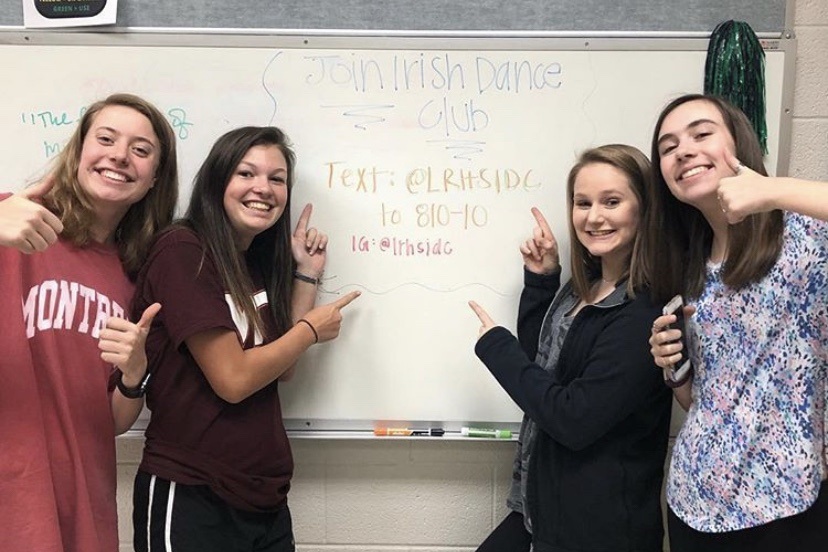 GREEN = USE
Join Irish Dance
Club
"The
of
Text: @LRHSIDC
to 810-10
IG: @lrhsidc
MONTR